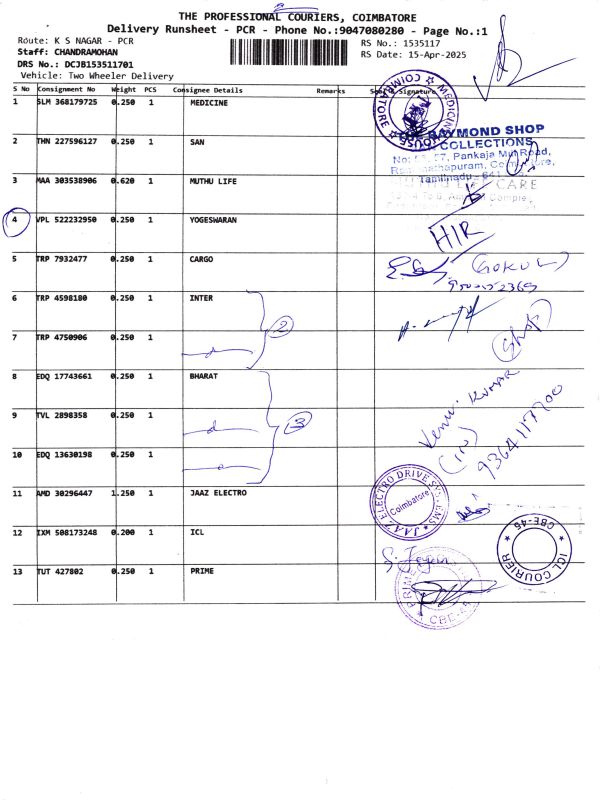 THE PROFESSIONAL COURIERS, COIMBATORE
Delivery Runsheet - PCR - Phone No.:9047080280 - Page No.:1
Route: K S NAGAR - PCR
RS No.: 1535117
Staff: CHANDRAMOHAN
RS Date: 15-Apr-2025
DRS No.: DCJB153511701
Vehicle: Two Wheeler Delivery
S No Consignment No Weight PCS Consignee Details Remarks Seal & Signature
1 SLM 368179725 0.250 1 MEDICINE
MEDICINE HOUSE COIMBATORE
2 THN 227596127 0.250 1 SAN
THE RAYMOND SHOP
COLLECTIONS
Pankaja Mill Road,
Tamilnadu - 641
3 MAA 303538906 0.620 1 MUTHU LIFE
MUTHU LIFE CARE
4 VPL 522232950 0.250 1 YOGESWARAN
H/R
5 TRP 7932477 0.250 1 CARGO
6 TRP 4598180 0.250 1 INTER
2
7 TRP 4750906 0.250 1
(Shop)
8 EDQ 17743661 0.250 1 BHARAT
KUMAR
9 TVL 2898358 0.250 1
3
9364117700
10 EDQ 13630198 0.250 1
11 AMD 30296447 1.250 1 JAAZ ELECTRO
JAAZ ELECTRO DRIVE SYSTEMS
Coimbatore
12 IXM 508173248 0.200 1 ICL
ICL COURIER
CBE-45
13 TUT 427802 0.250 1 PRIME
PRIME
CBE-45